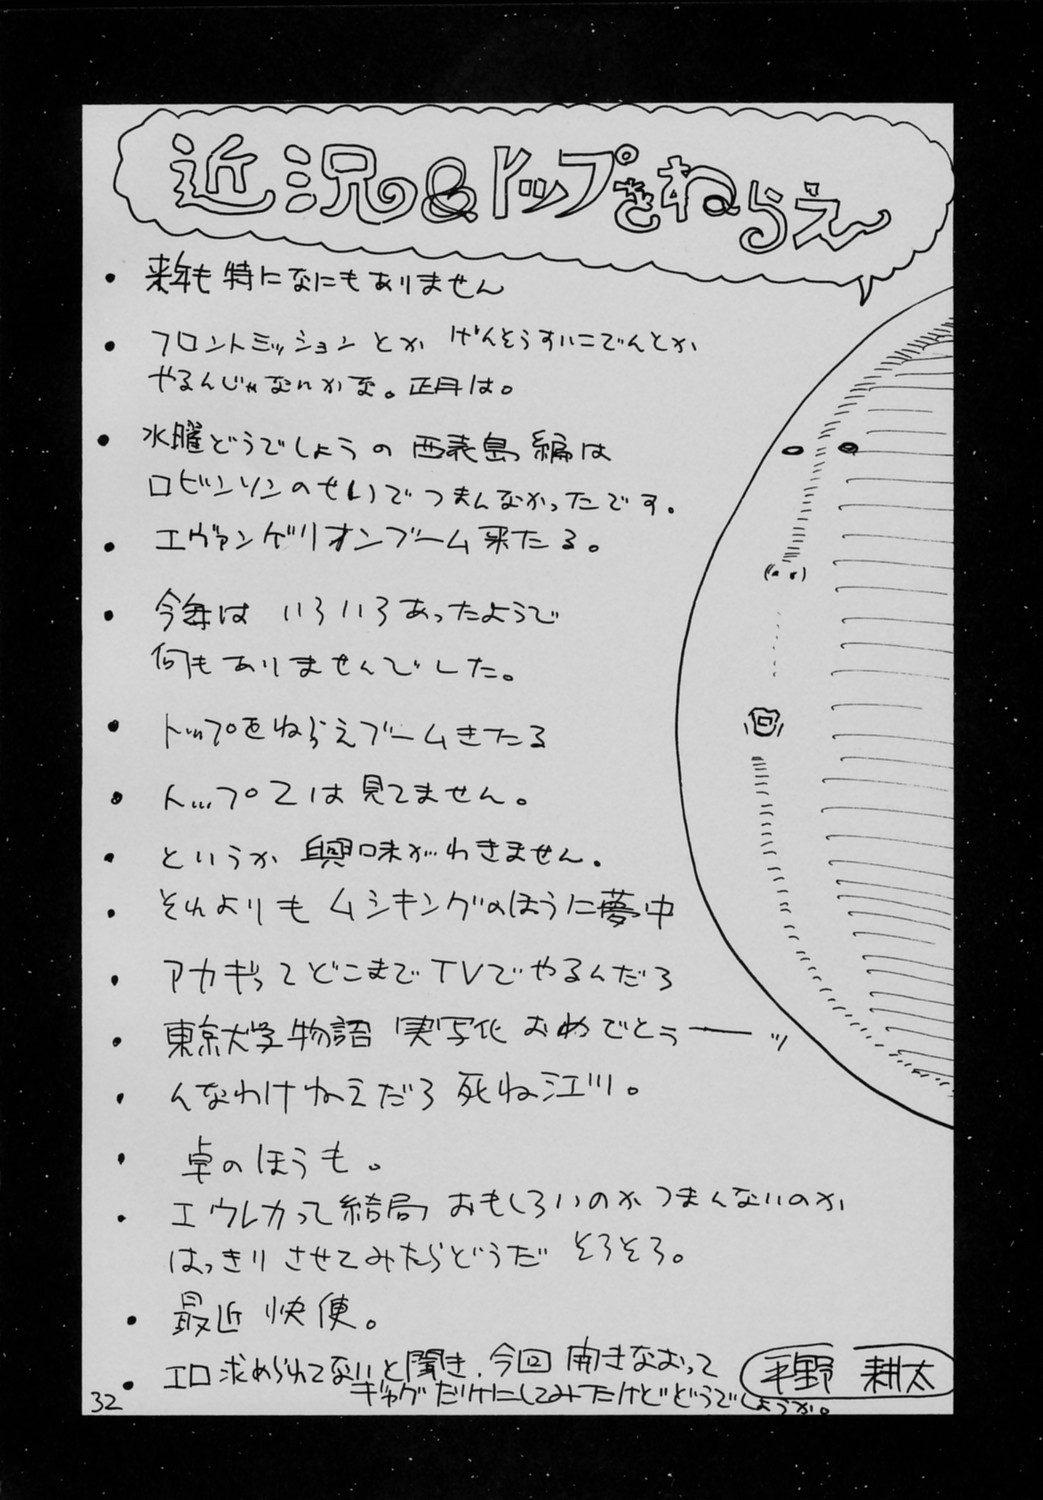 近況&トップをねらえ~
・来年も特になにもありません
・フロントミッションとか げんそうすいこでんとか
やるんじゃないかな。正月は。
・水曜どうでしょうの西表島編は
ロビンソンのせいでつまんなかったです。
・エヴァンゲリオンブーム来たる。
・今年は いろいろあったようで
何もありませんでした。
・トップをねらえブームきたる
・トップ2は見てません。
・というか 興味がわきません。
・それよりも ムシキングのほうに夢中
・アカギってどこまでTVでやるんだろ
・東京大学物語 実写化 おめでとぅーーッ
・んなわけねえだろ 死ね江川。
・卓のほうも。
・エウレカって結局 おもしろいのか つまんないのか
はっきり させてみたらどうだ そろそろ。
・最近 快便。
・エロ求められてないと聞き、今回 開きなおって
ギャグだけにしてみたけどどうでしょうか。
平野 耕太
32